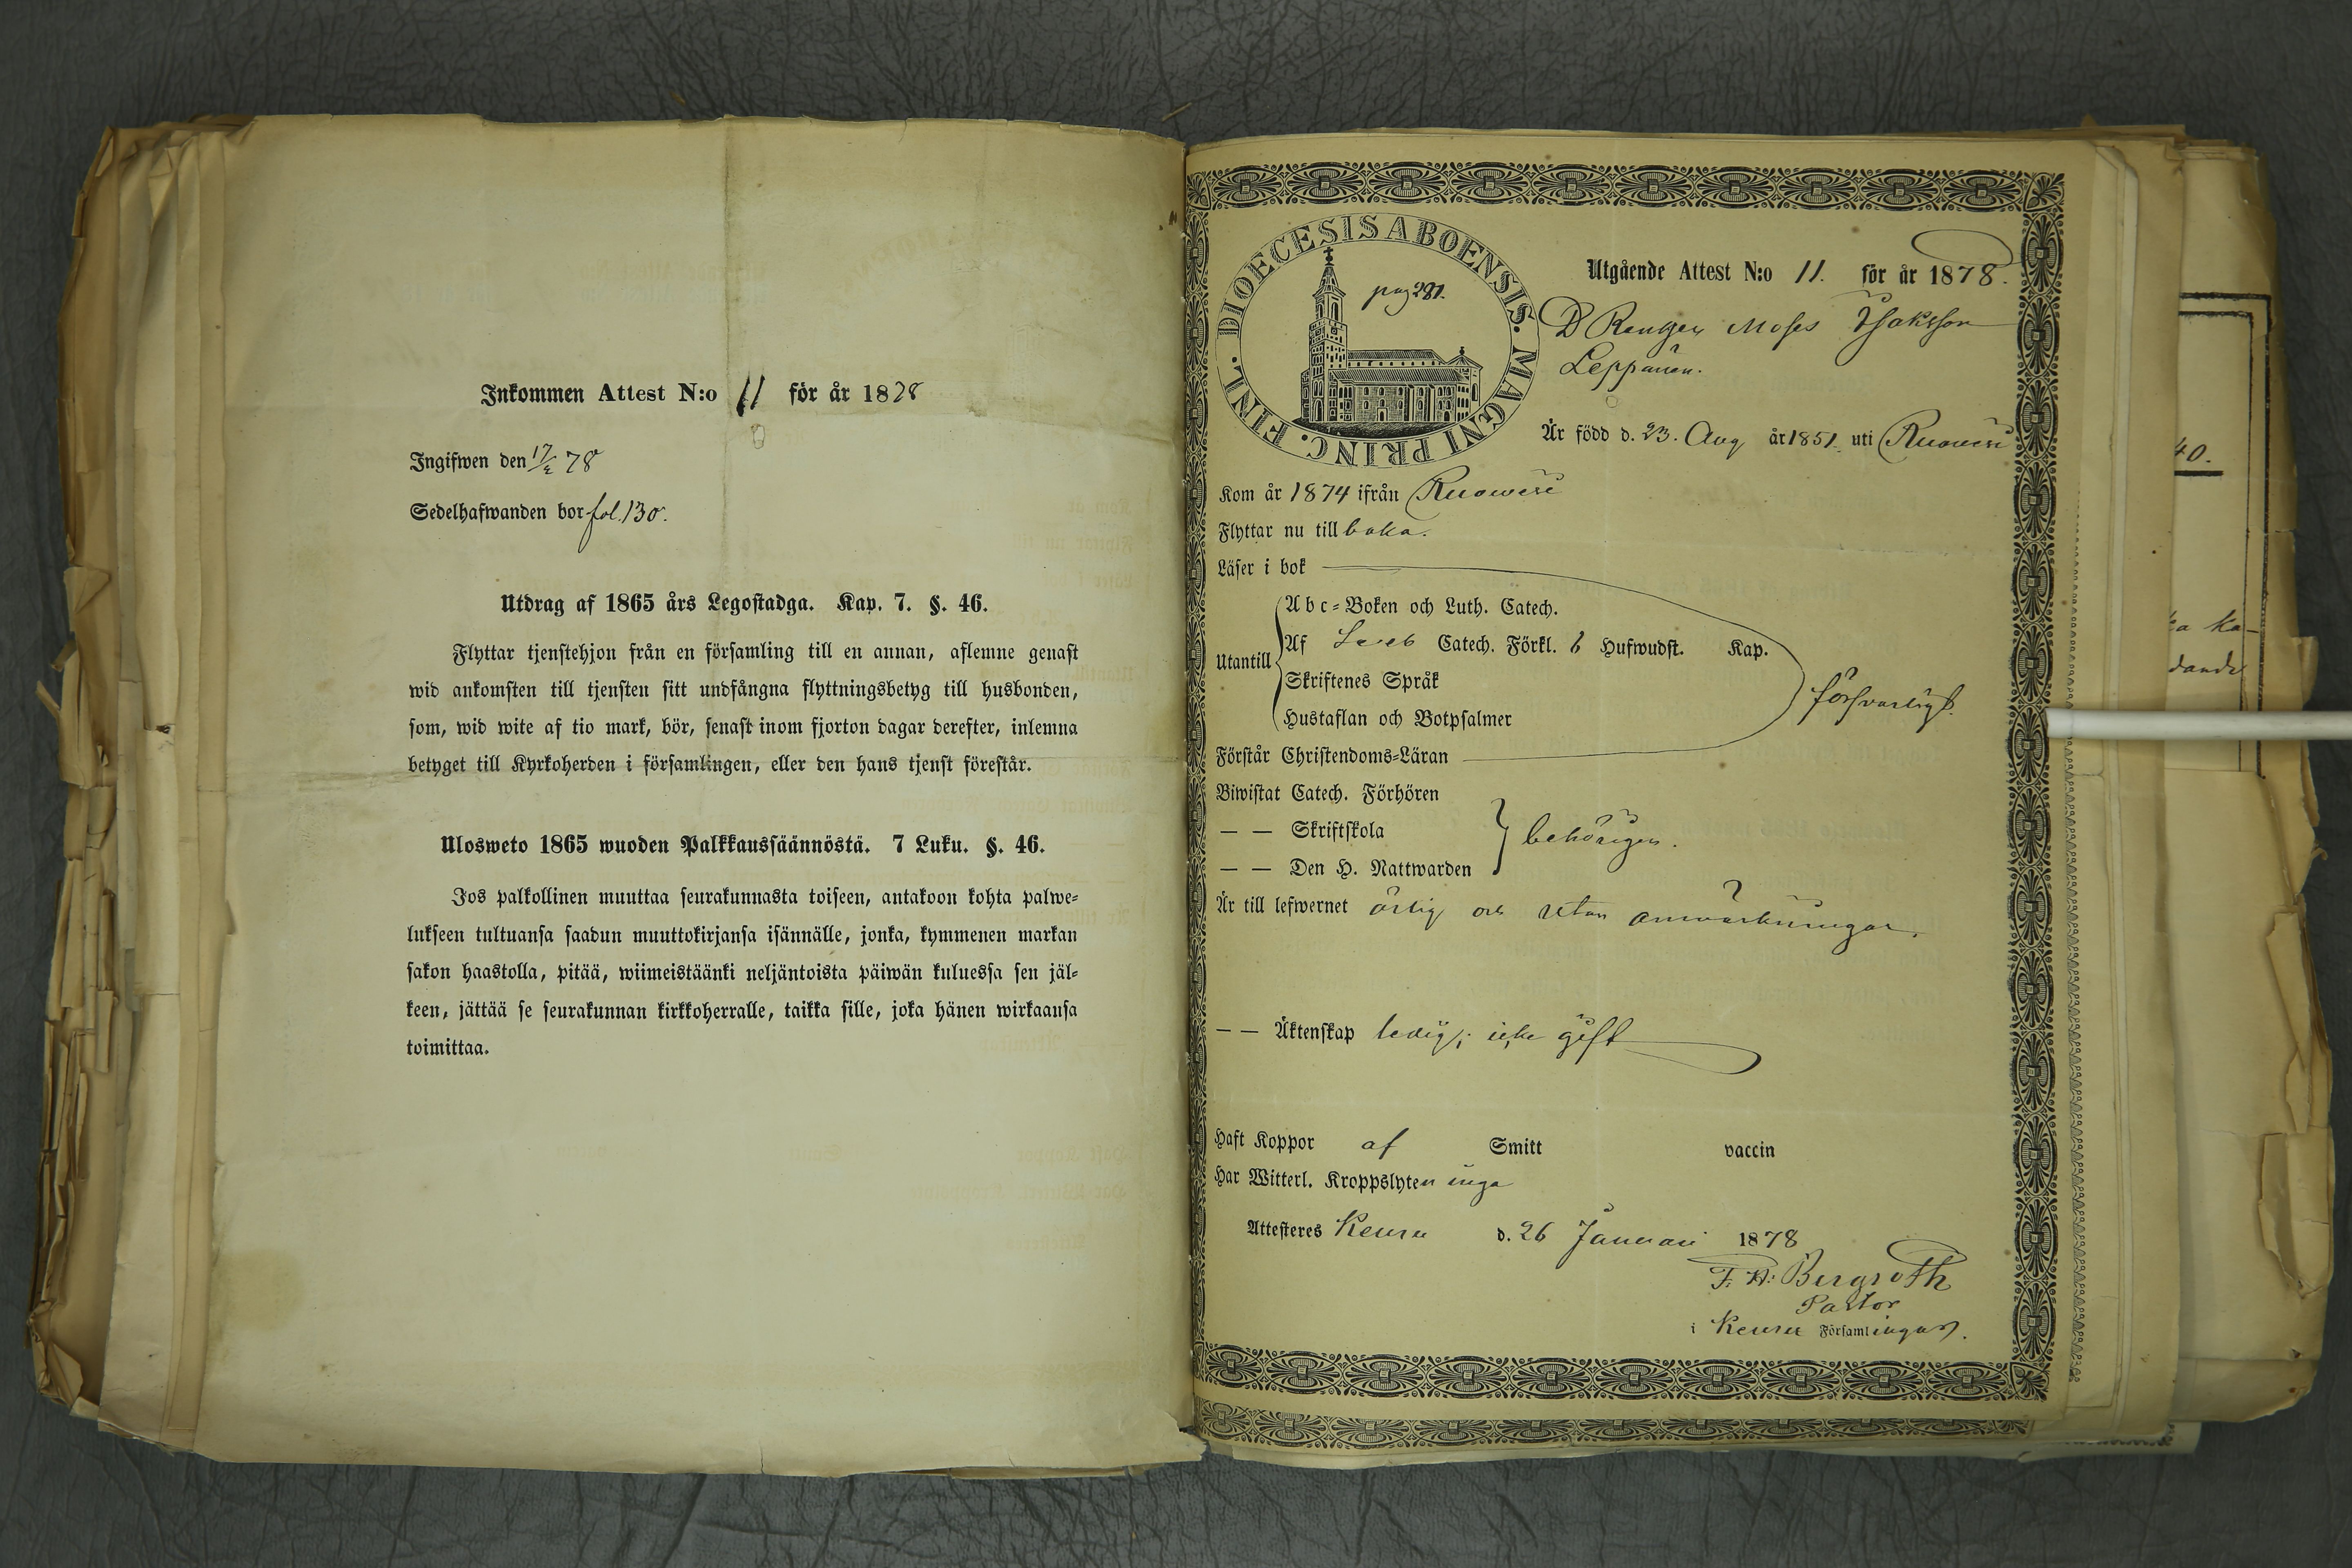 Inkommen Attest N:o 11 för år 1878
Ingifwen den 17/2 78
Sedelhafwanden bor fol. 130.
Utdrag af 1865 års Legostadga. Kap. 7. §. 46.
Flyttar tjenstehjon från en församling till en annan, aflemne genast
wid ankomsten till tjensten sitt undfångna flyttningsbetyg till husbonden,
som, wid wite af tio mark, bör, senast inom fjorton dagar derefter, inlemna
betyget till Kyrkoherden i församlingen, eller den hans tjenst förestår.
Ulosweto 1865 wuoden Palkkaussäännöstä. 7 Luku. §. 46.
Jos palkollinen muuttaa seurakunnasta toiseen, antakoon kohta palwe-
lukseen tultuansa saadun muuttokirjansa isännälle, jonka, kymmenen markan
sakon haastolla, pitää, wiimeistäänki neljäntoista päiwän kuluessa sen jäl-
keen, jättää se seurakunnan kirkkoherralle, taikka sille, joka hänen wirkaansa
toimittaa.
DIOECESIS ABOENSIS. MAGNI PRINC. FINL.
pag 281.
Utgående Attest N:o 11. för år 1878.
D Rengen Moses Isaksson
Leppänen.
Är född d. 23. Aug år 1851. uti Ruowesi
Kom år 1874 ifrån Ruowesi
Flyttar nu till baka.
Läser i bok
Abc-Boken och Luth. Catech.
Utantill
Af Sveb Catech. Förkl. 6 Hufwudst. Kap.
Skriftenes Språk
Hustaflan och Botpsalmer
försvarligt.
Förstår Christendoms-Läran
Biwistat Catech. Förhören
— — Skriftskola
behörigen.
— — Den H. Nattwarden
Är till lefwernet ärlig och utan anmärkningar.
— — Äktenskap ledig; icke gift
Haft Koppor af Smitt vaccin
Har Witterl. Kroppslyten inga
Attesteres Keuru d. 26 Januari 1878
F. H: Bergroth
Pastor
i Keuru Församlingar.
40.
ka ka-
dande